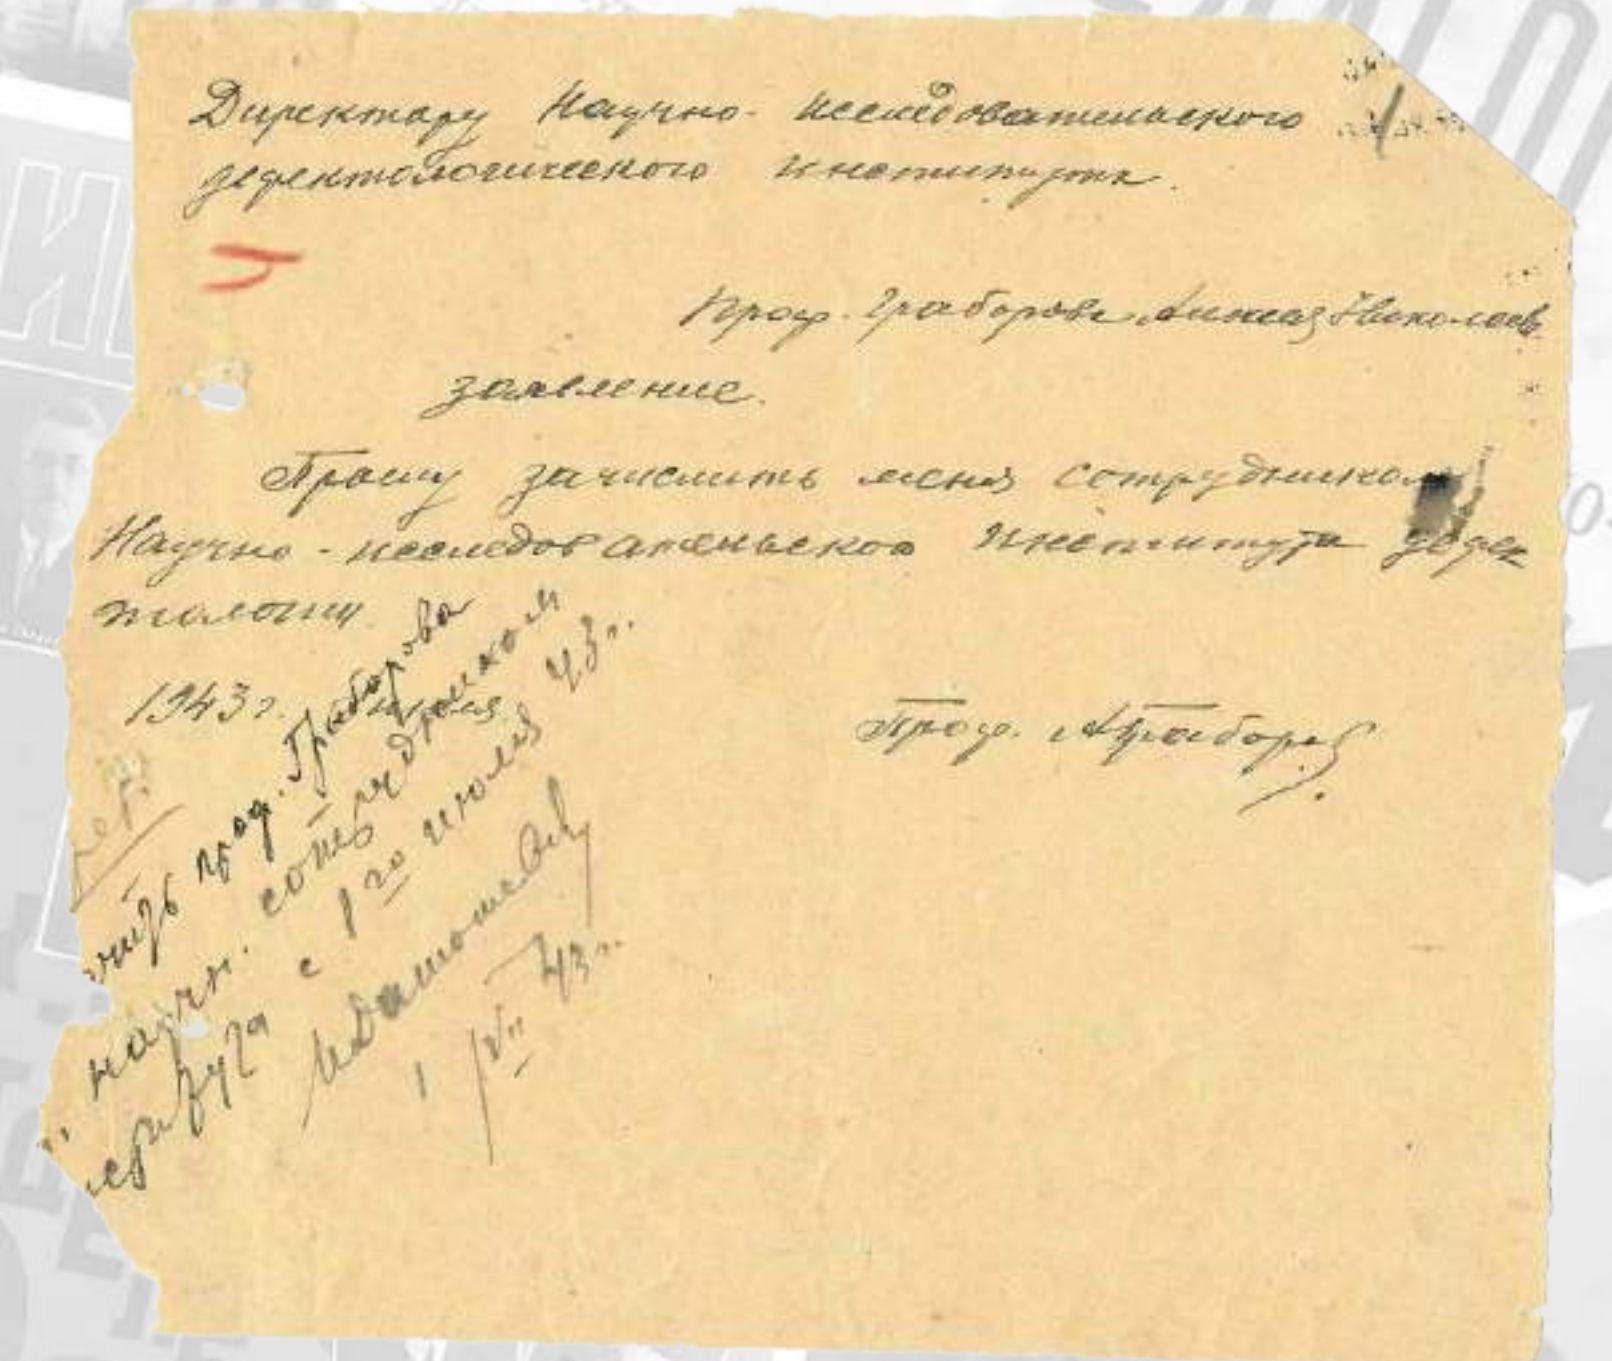 Директору Научно-исследовательского
дефектологического института.
Проф. Граборова Алексея Николаев.
заявление.
Прошу зачислить меня сотрудником
Научно-исследовательского института дефек
тологии.
1943 г. июля
Проф. АГраборов
проф. Граборова
научн. сотрудником
с 1го июля 43 г.
1/VII 43 г.